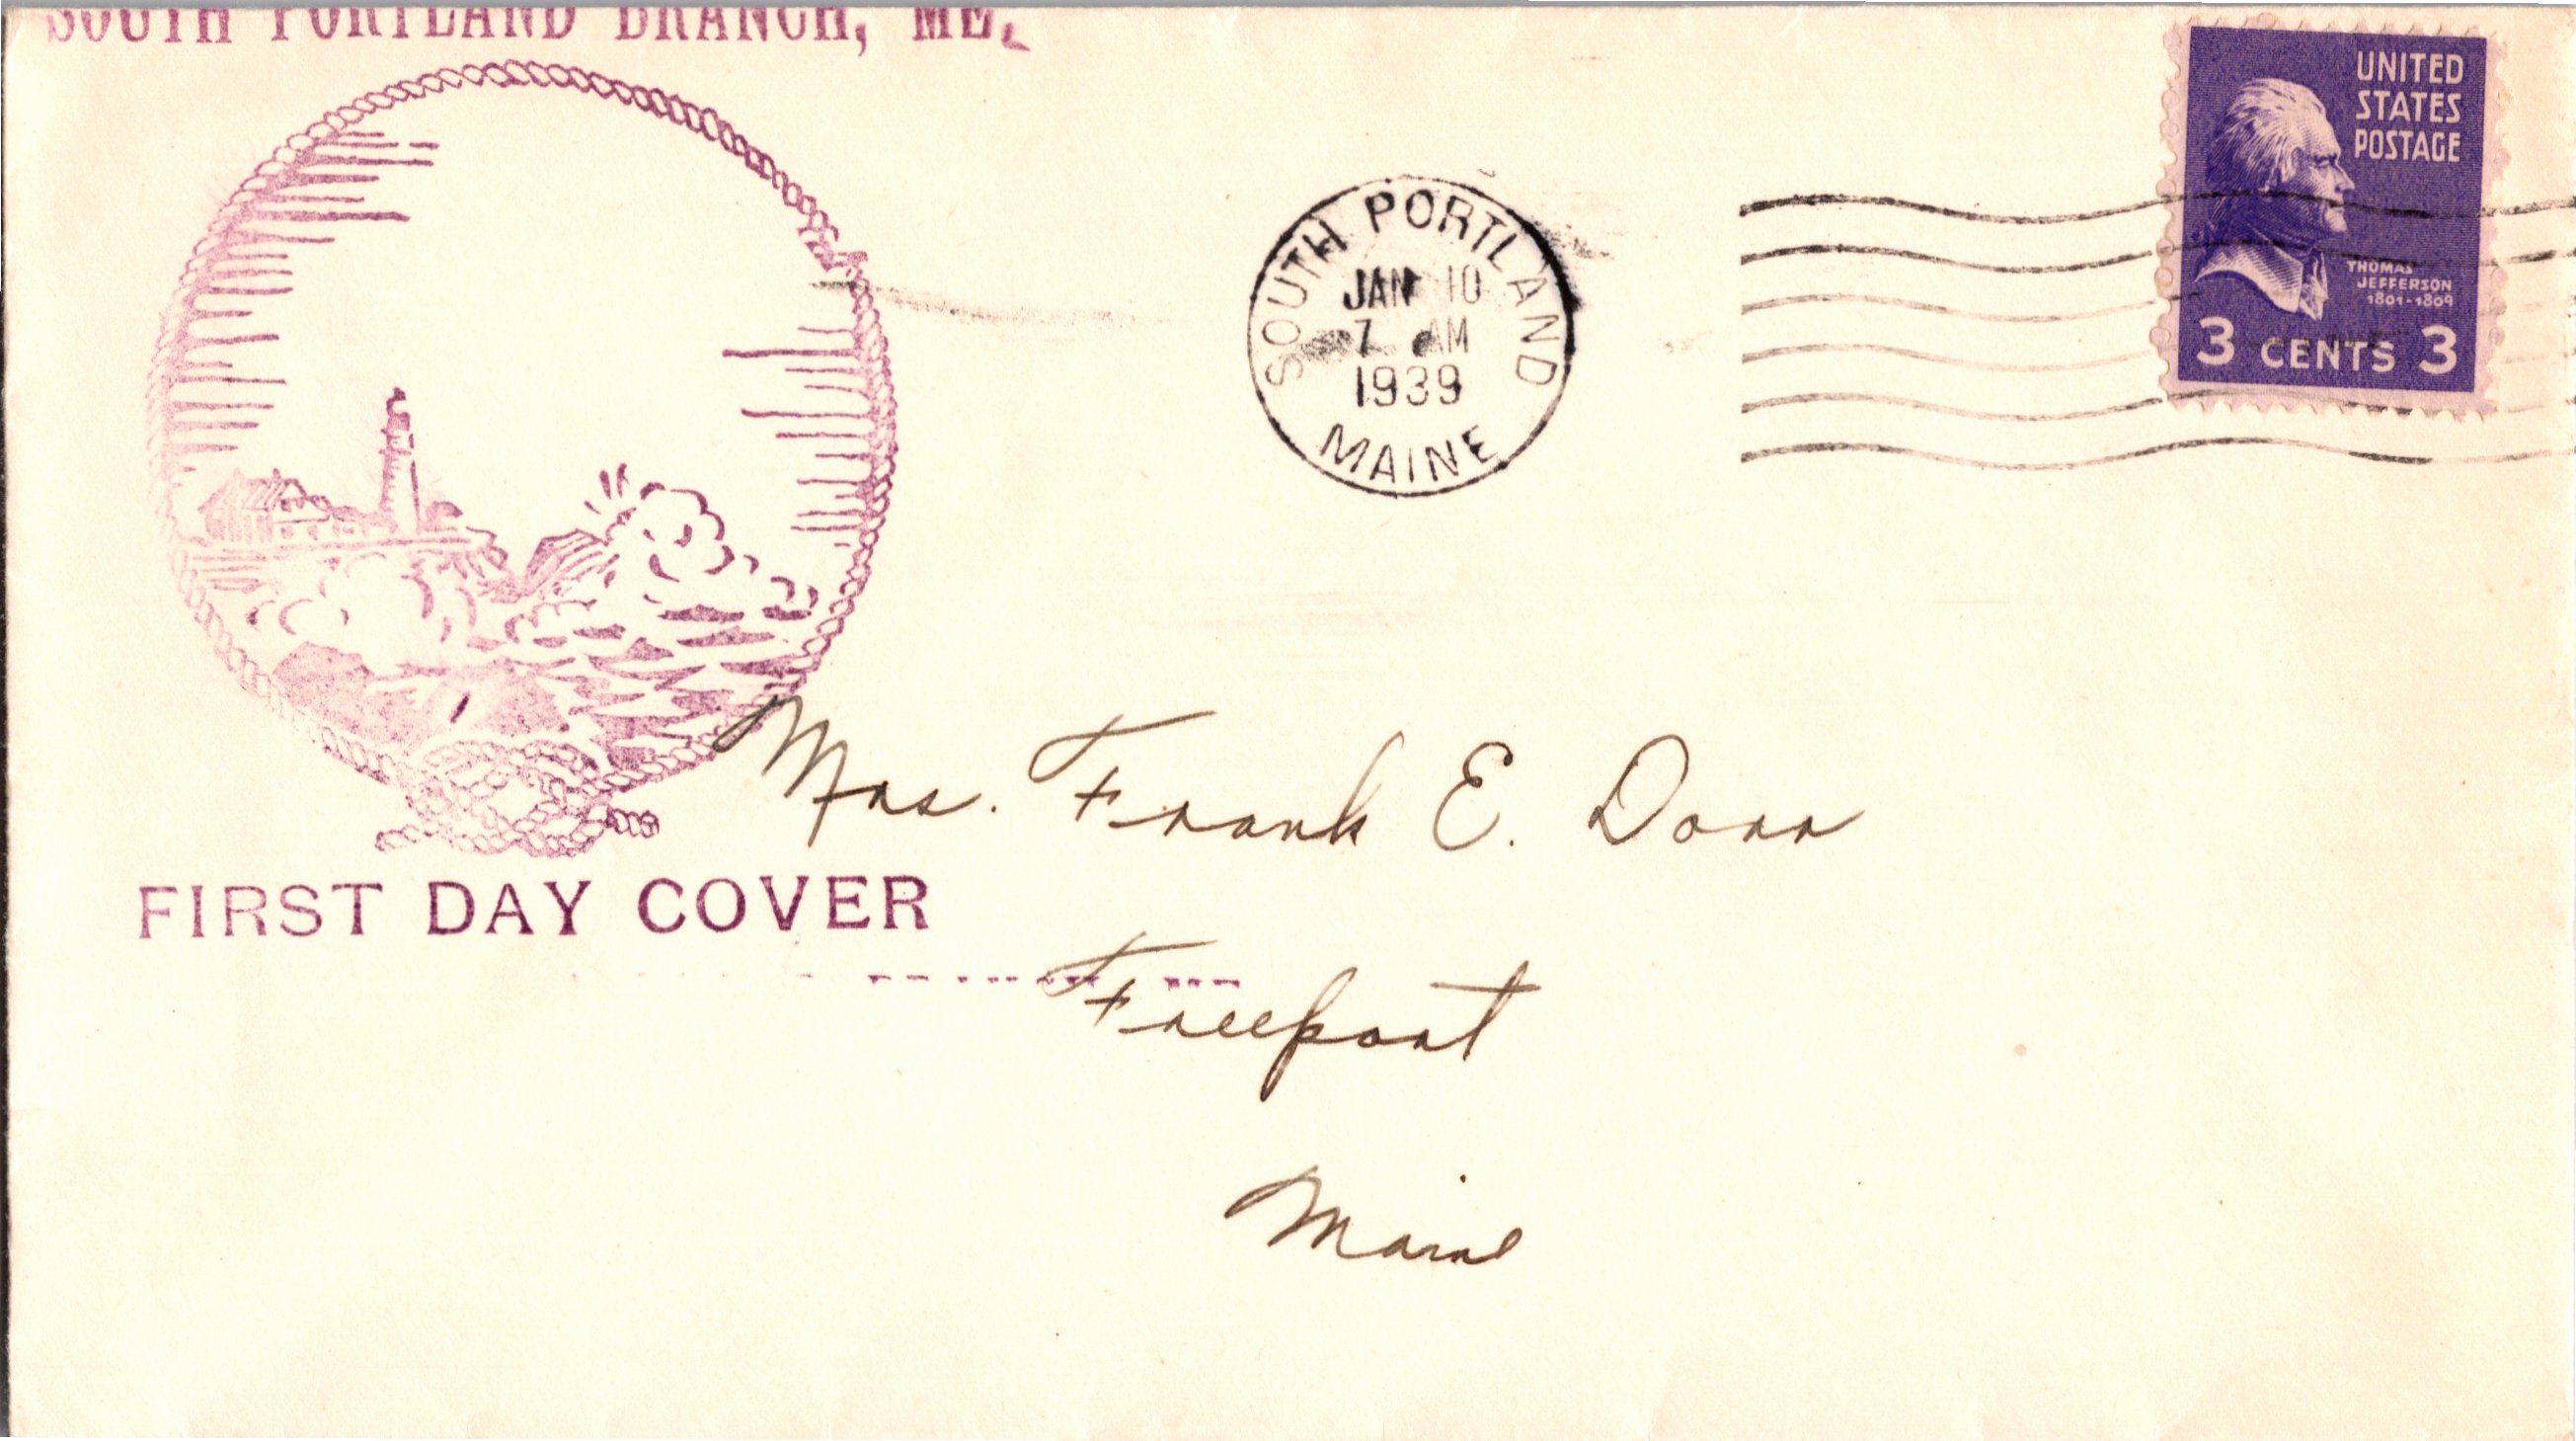 SOUTH PORTLAND BRANCH, ME.
UNITED
STATES
POSTAGE
THOMAS
JEFFERSON
1801-1809
3 CENTS 3
SOUTH PORTLAND
JAN 10
7 AM
1939
MAINE
Mrs. Frank E. Dorr
FIRST DAY COVER
Freeport
Maine